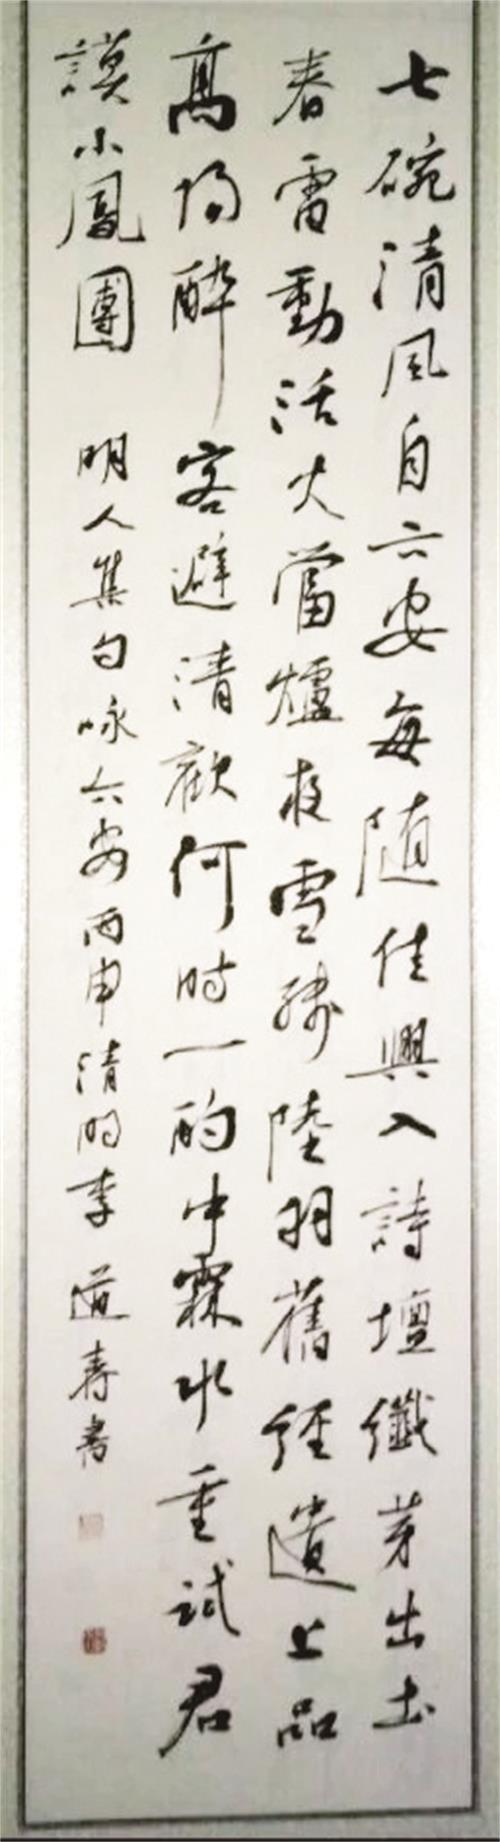 七碗清風自六安每随佳興入詩壇纖芽出土
春雷動活火當爐夜雪殘陸羽舊經遺上品
高陽醉客避清歡何時一酌中霖水重試君
謨小鳳團 明人集句咏六安丙申清明李道寿书